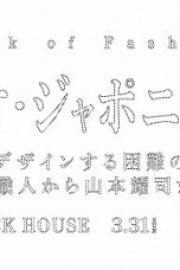 k of Fash
・ジャポニ
デザインする困難の
職人から山本耀司
CK HOUSE 3.31